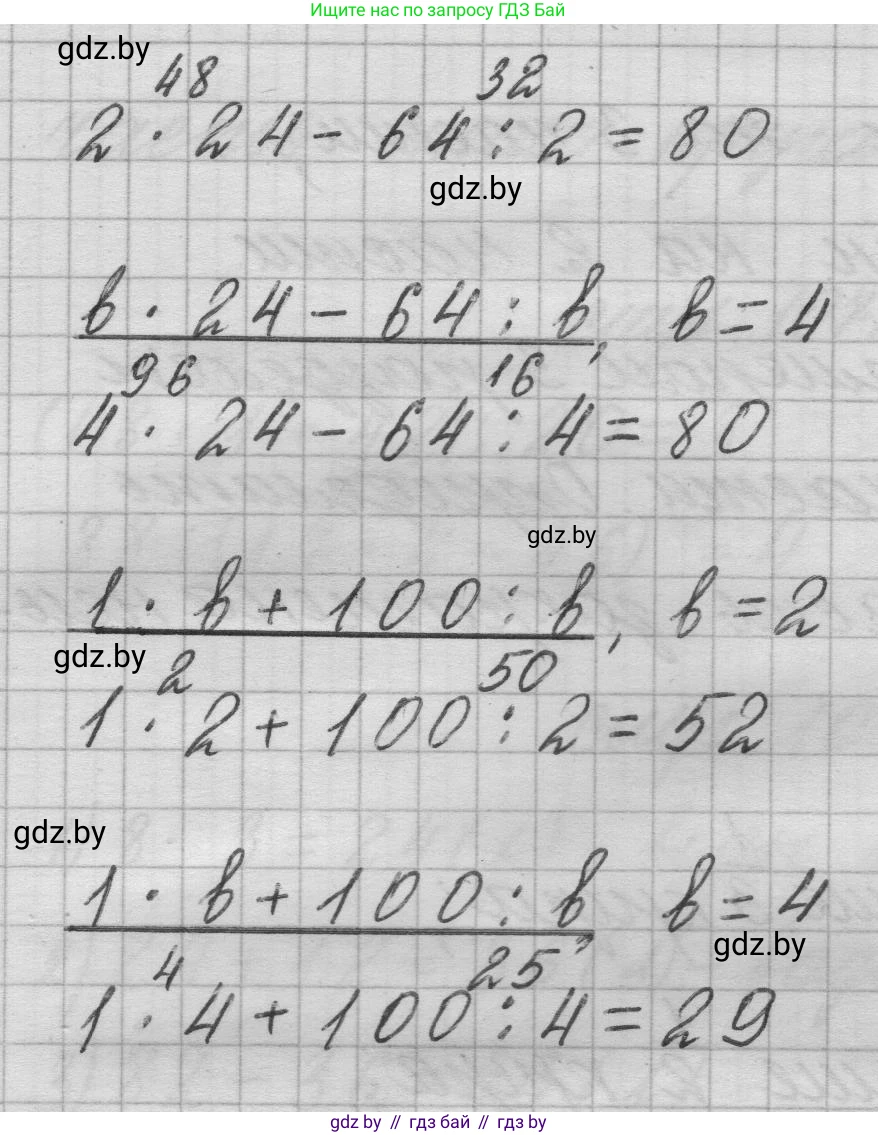 Ищите нас по запросу ГДЗ Бай
gdz.by
48 32
2 · 24 - 64 : 2 = 80
gdz.by
в · 24 - 64 : в, в = 4
96 16
4 · 24 - 64 : 4 = 80
gdz.by
1 · в + 100 : в, в = 2
gdz.by
2 50
1 · 2 + 100 : 2 = 52
gdz.by
1 · в + 100 : в, в = 4
gdz.by
4 25
1 · 4 + 100 : 4 = 29
gdz.by // гдз бай // гдз by